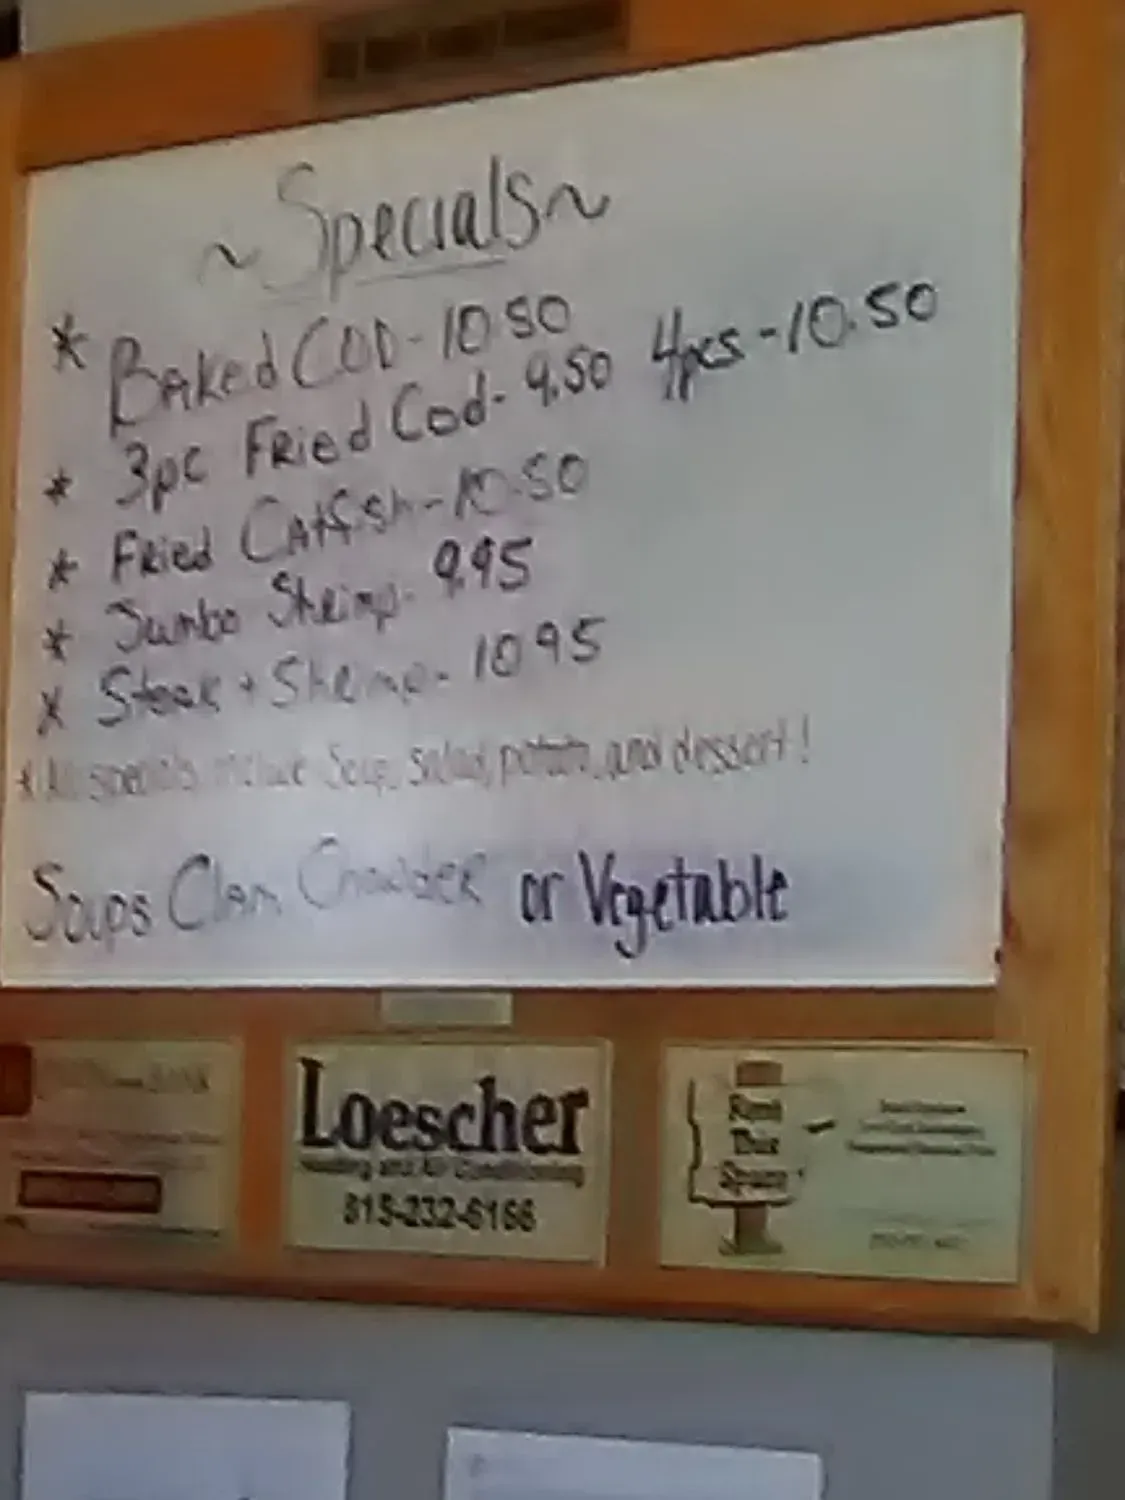 ~Specials~
* Baked COD - 10.50
* 3pc Fried Cod - 9.50 4pcs - 10.50
* Fried Catfish - 10.50
* Jumbo Shrimp - 9.95
* Steak + Shrimp - 10.95
* All specials include Soup, Salad, potato, and dessert!
Soups Clam Chowder or Vegetable
Loescher
Heating and Air Conditioning
815-232-6166
Rent
This
Space